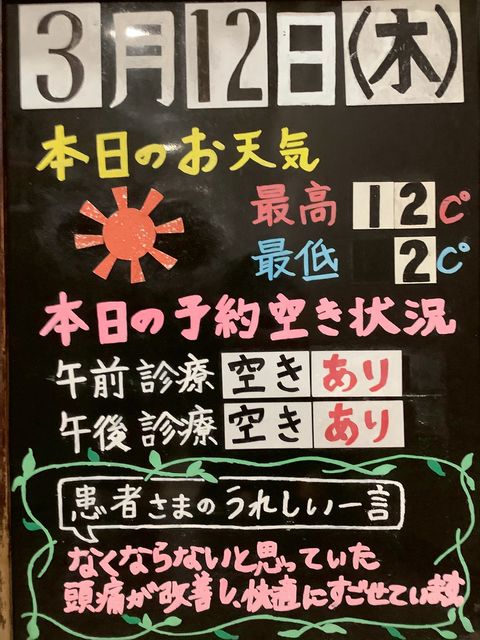 3月12日(木)
本日のお天気
最高 12℃
最低 2℃
本日の予約空き状況
午前診療 空き あり
午後診療 空き あり
患者さまのうれしい一言
なくならないと思っていた
頭痛が改善し、快適にすごせています